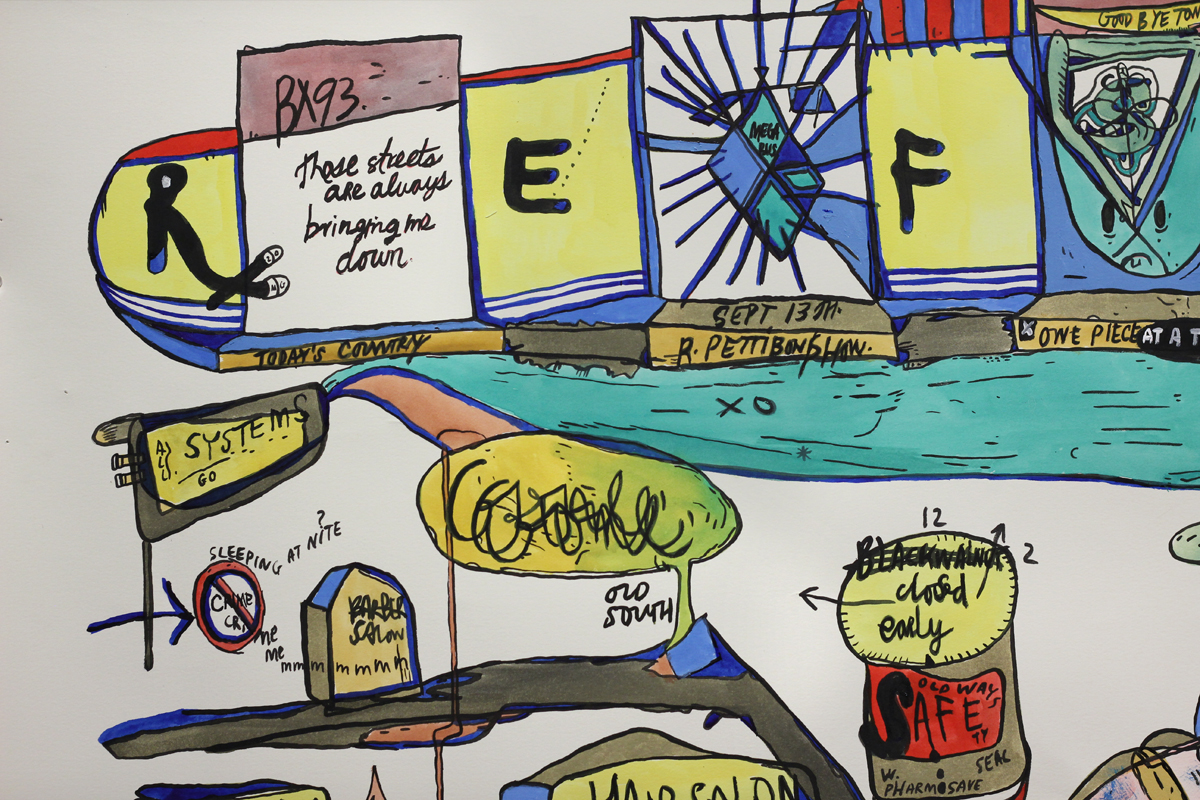 GOOD BYE TON
BX93.
Those streets
are always
bringing me
down.
R E F
MEGA
BUS
SEPT 13TH.
TODAY'S COUNTRY
R. PETTIBON SHOW.
X ONE PIECE AT A T
XO
ALL SYSTEMS
GO
SLEEPING AT NITE?
CRIME
CRI
me
me
mmm mmmm
BARBER
SALON
OLD
SOUTH
12
2
BLACKWALNUT
closed
early
OLD WAY'S
SAFE
TY
SEAL
W.
PHARMASAVE
HAIR SALON